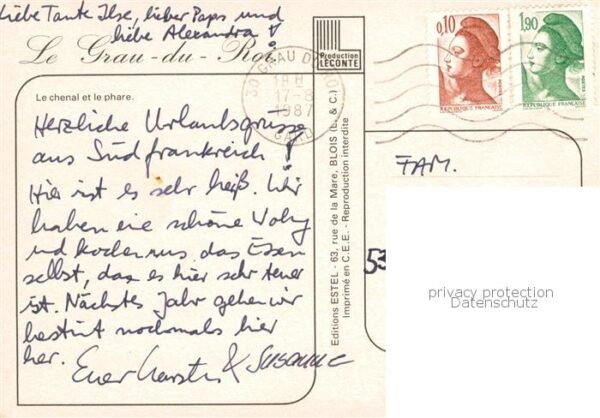 Liebe Tante Ilse, lieber Paps und
liebe Alexandra !
Le Grau-du-Roi
Le chenal et le phare.
Herzliche Urlaubsgrüsse
aus Südfrankreich !
Hier ist es sehr heiß. Wir
haben eine schöne Wohng
und kochen uns das Essen
selbst, da es hier sehr teuer
ist. Nächstes Jahr gehen wir
bestimt nochmals hier
her.
Euer Karsten & Susanne
Production
LECONTE
Editions ESTEL - 63, rue de la Mare, BLOIS (L. & C.)
Imprimé en C.E.E. - Reproduction interdite
30 GRAU DU ROI
19 H
17-8
1987
GARD
0,10
POSTES
REPUBLIQUE FRANÇAISE
1,90
POSTES
REPUBLIQUE FRANÇAISE
FAM.
53
privacy protection
Datenschutz